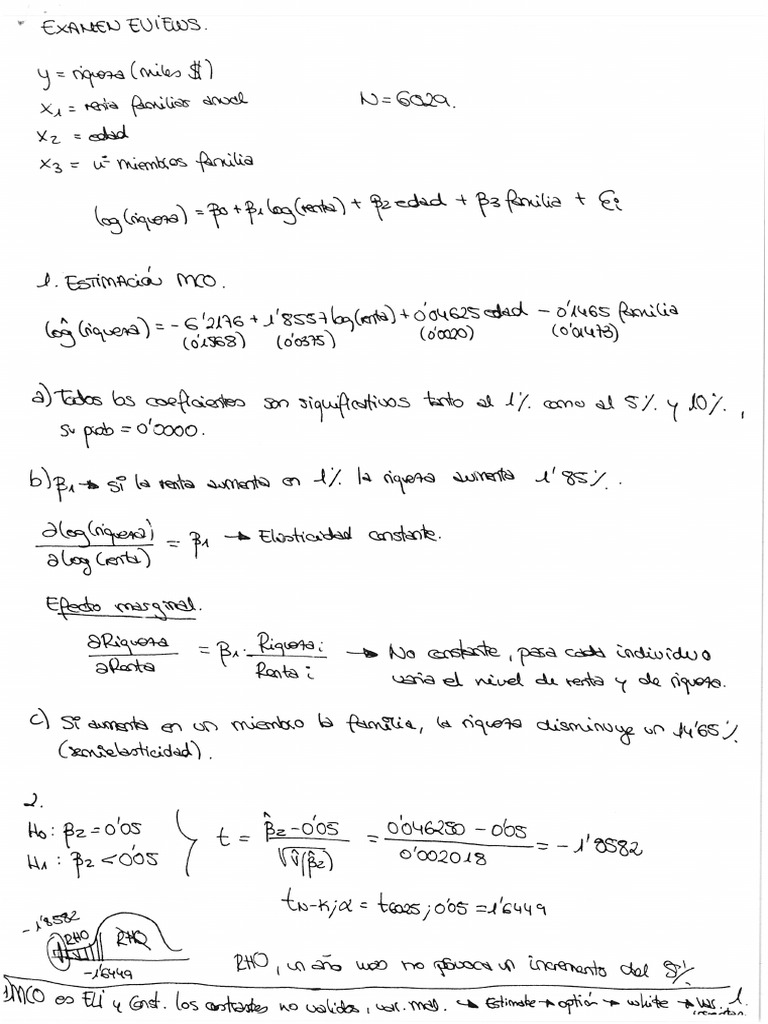 EXAMEN EVIEWS.
y = riqueza (miles $)
x1 = renta familiar anual
N = 6029.
x2 = edad
x3 = nº miembros familia
log(riqueza) = β0 + β1 log(renta) + β2 edad + β3 familia + Ɛi
1. ESTIMACIÓN MCO.
log^(riqueza) = -6'2176 + 1'8557 log(renta) + 0'04625 edad - 0'1465 familia
(0'1568) (0'0375) (0'0020) (0'01473)
a) Todos los coeficientes son significativos tanto al 1% como al 5% y 10%,
su prob = 0'0000.
b) β1 → Si la renta aumenta en 1% la riqueza aumenta 1'85%.
∂log(riqueza) / ∂log(renta) = β1 → Elasticidad constante.
Efecto marginal.
∂Riqueza / ∂Renta = β1 · Riqueza i / Renta i → No constante, para cada individuo
varia el nivel de renta y de riqueza.
c) Si aumenta en un miembro la familia, la riqueza disminuye un 14'65%
(semielasticidad).
2.
H0: β2 = 0'05
H1: β2 < 0'05
t = (β̂2 - 0'05) / √V̂(β̂2) = (0'046250 - 0'05) / 0'002018 = -1'8582
tN-K;α = t6025;0'05 = 1'6449
-1'8582
RHO RHO
-1'6449
RHO, un año más no provoca un incremento del 5%
MCO es ELI y Const. los contrastes no validos, var. mal. → Estimate → option → white → var.